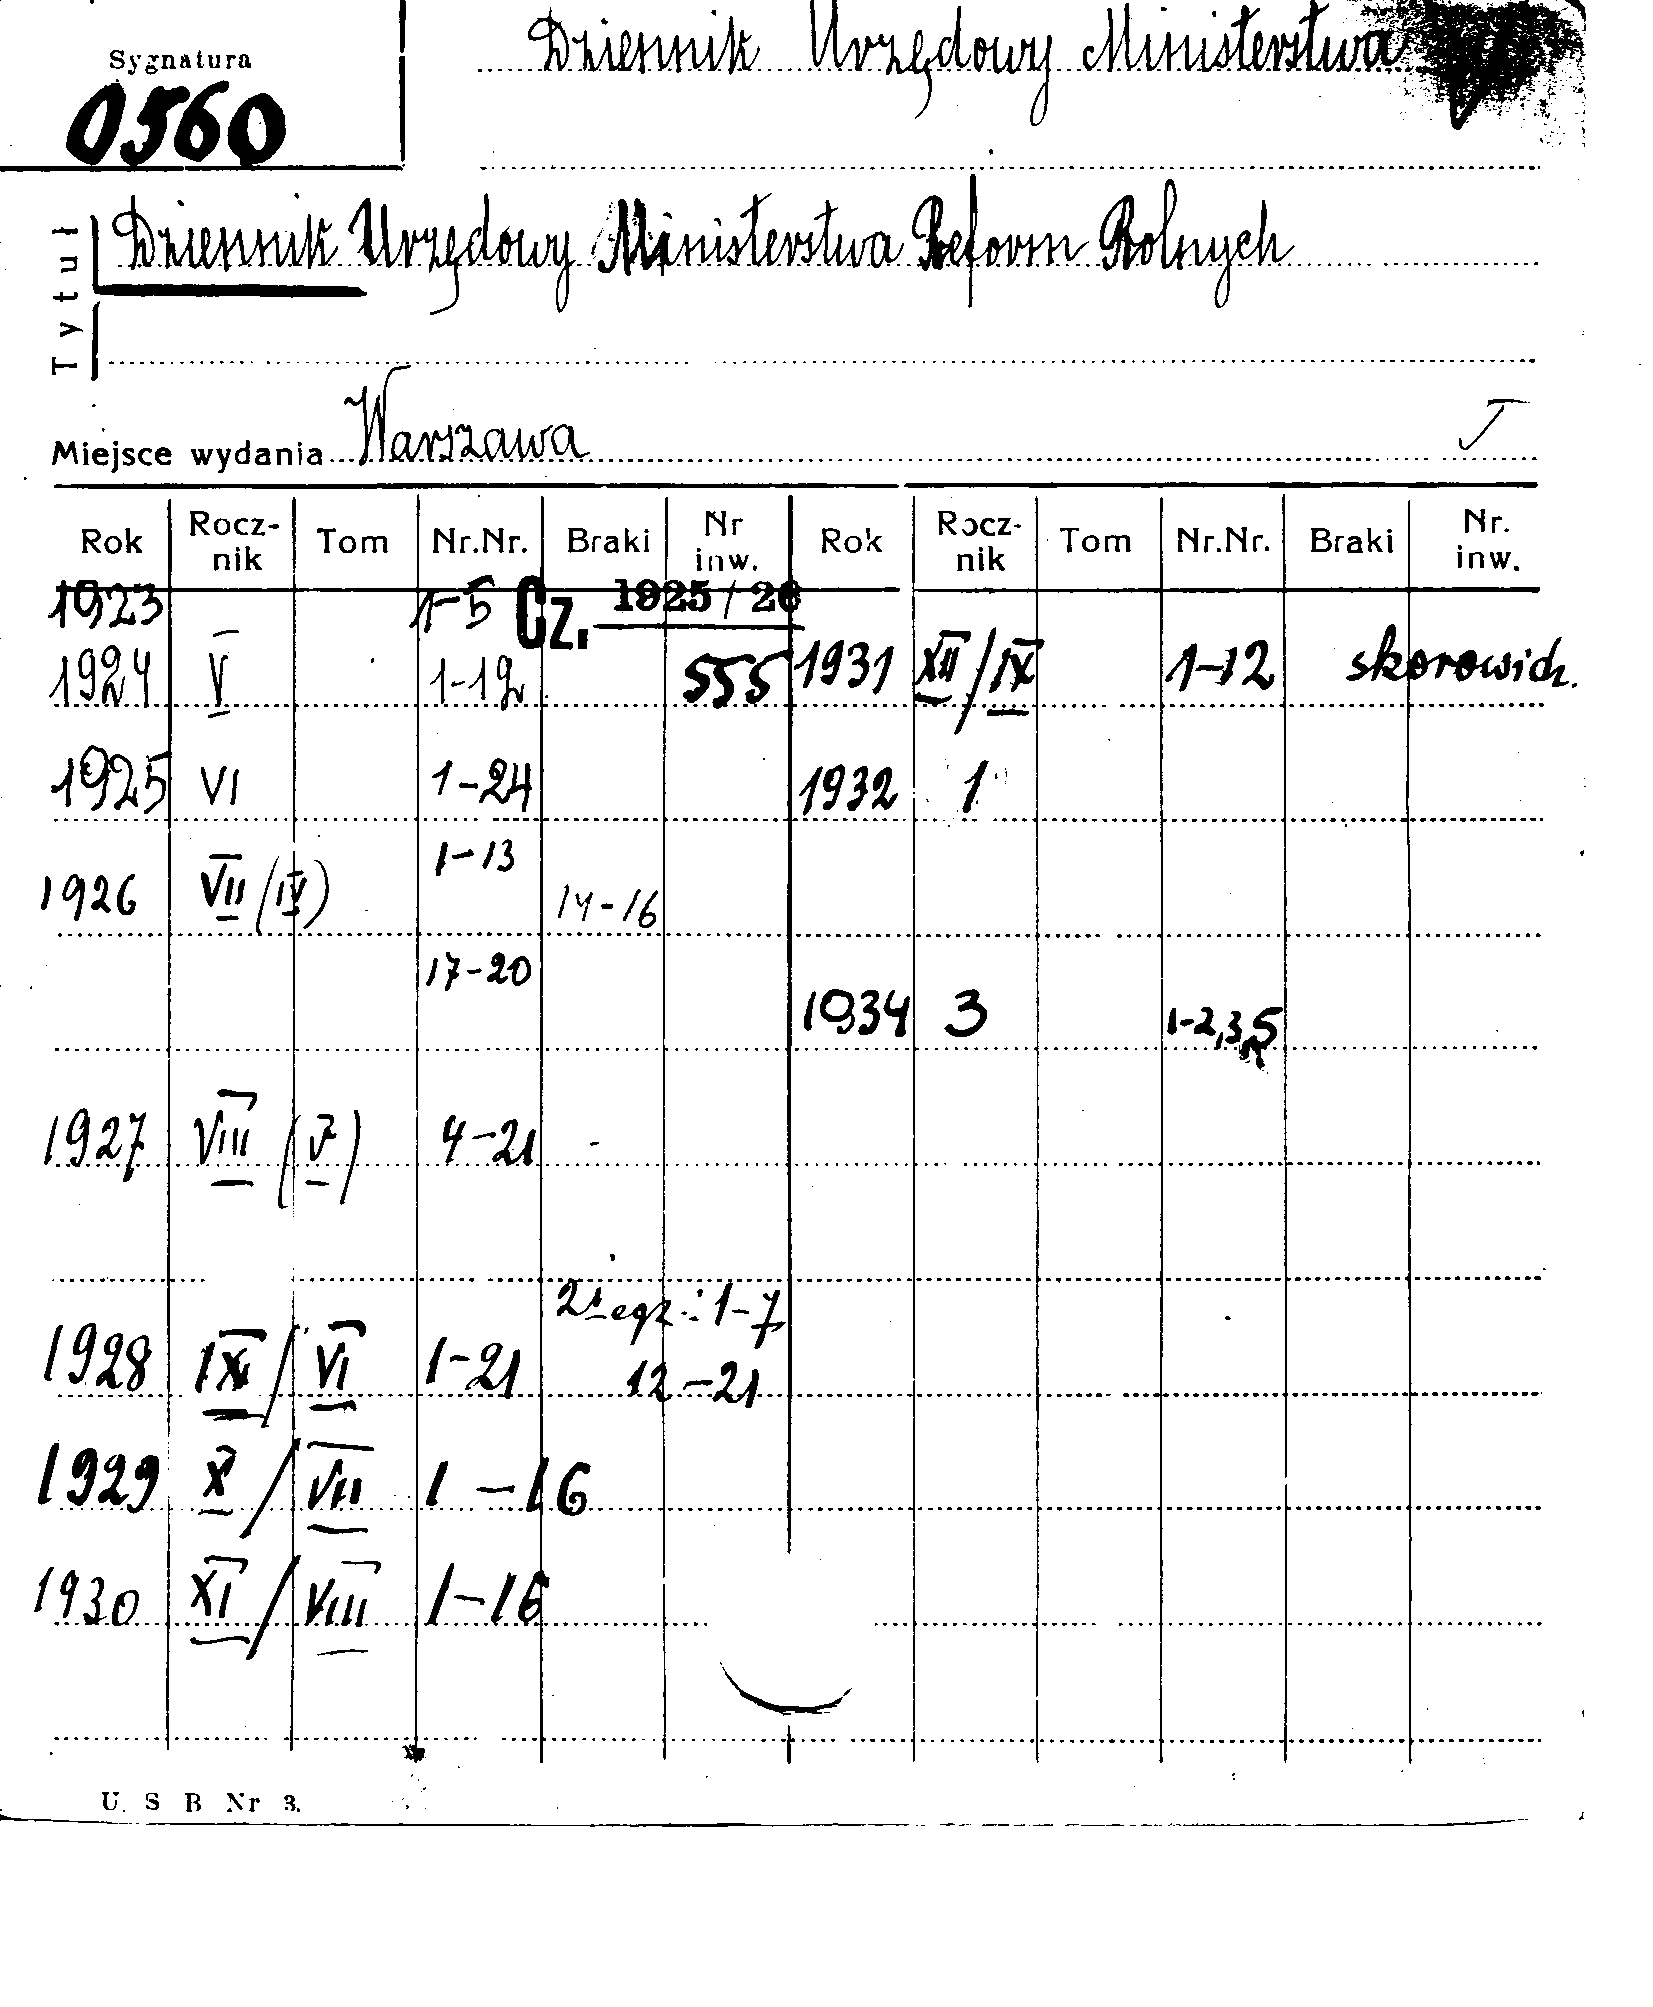 Sygnatura
0560
Dziennik Urzędowy Ministerstwa
Tytuł
Dziennik Urzędowy Ministerstwa Reform Rolnych
Miejsce wydania Warszawa
Rok Rocz-nik Tom Nr.Nr. Braki Nr inw. Rok Rocz-nik Tom Nr.Nr. Braki Nr. inw.
1923 1-5 Cz. 1925/26
1924 V 1-12 555 1931 XII/IX 1-12 skorowidz.
1925 VI 1-24 1932 1
1926 VII (IV) 1-13 14-16
17-20
1934 3 1-2,3,5
1927 VIII (V) 4-21 -
2i egz: 1-7
1928 IX/VI 1-21 12-21
1929 X/VII 1-16
1930 XI/VIII 1-16
U. S B Nr 3.